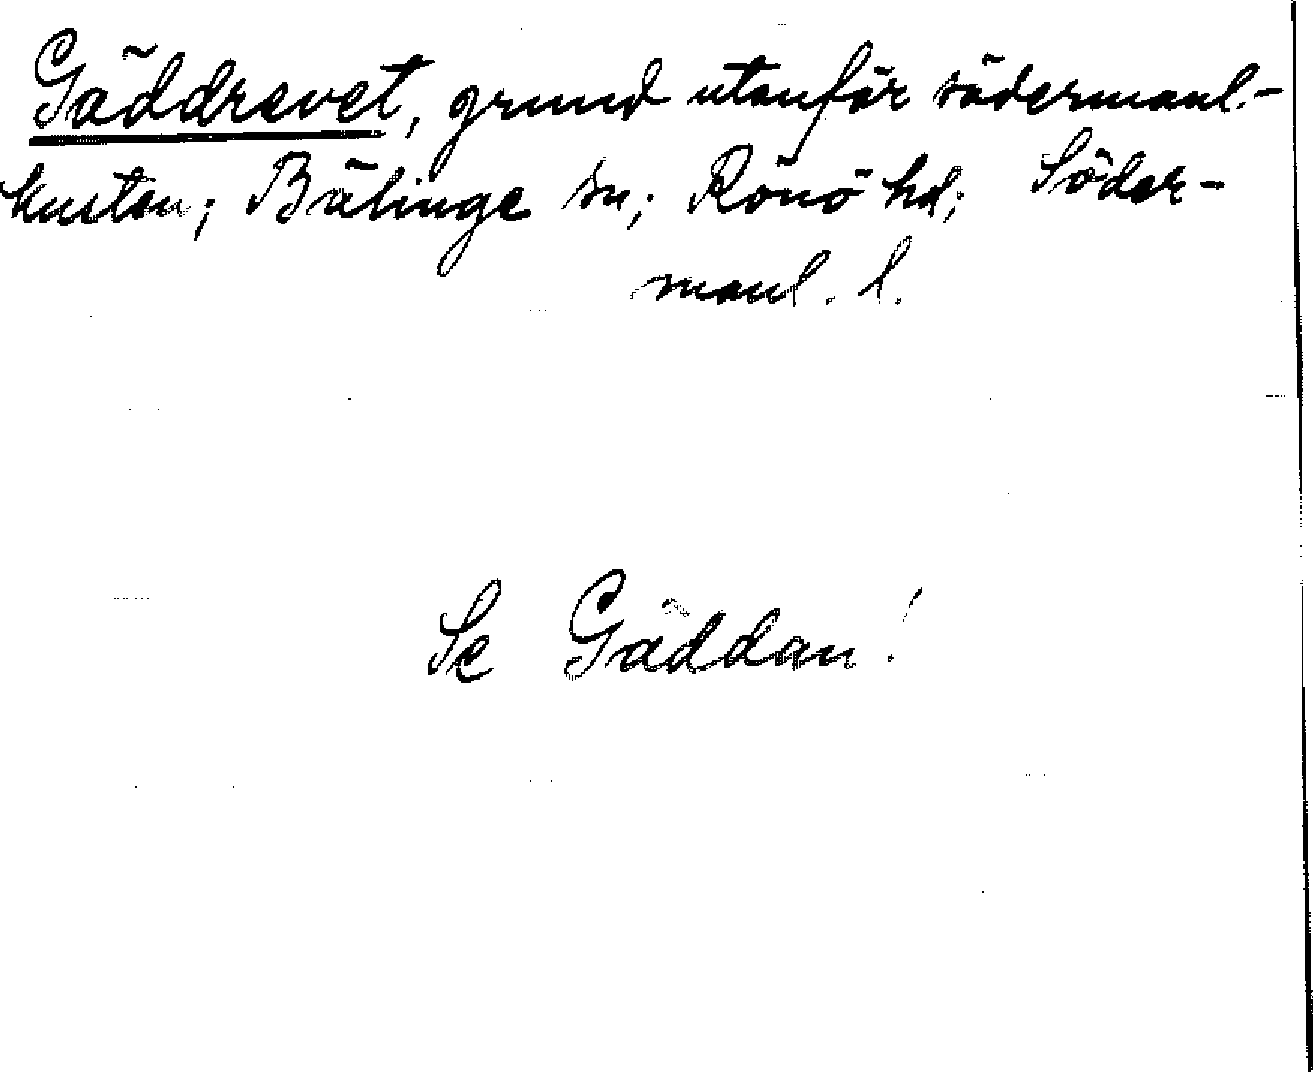 Gäddrevet, grund utanför södermanl.-
kusten; Bälinge sn; Rönö hd; Söder-
manl. l.
Se Gäddan!